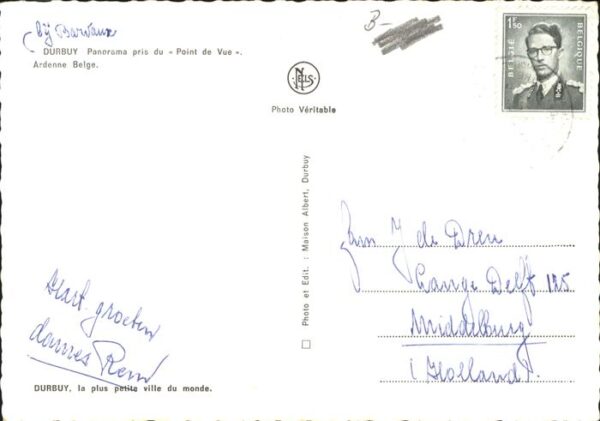 bij Barvaux
DURBUY Panorama pris du « Point de Vue ».
Ardenne Belge.
B-
NELS
Photo Véritable
1F50
BELGIE BELGIQUE
Photo et Edit. : Maison Albert, Durbuy
Fam J. de Dreu
Lange Delft 125
Middelburg
Holland.
Hart. groeten
dames
DURBUY, la plus petite ville du monde.